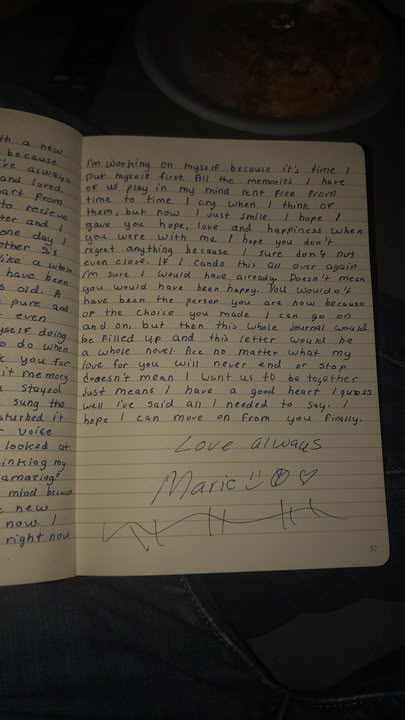 th a new
because
i've always
and loved.
art from
to recieve
ter and I
one day I
other sis
like a whole
have been
s old. A
pure and
even
yself doing
o do when
k you for
it memory
stayed
sung the
sturbed it
r voice
looked at
inking my
amazing!
mind because
new
now. I
right now
I'm working on myself because it's time I
put myself first. All the memories I have
of us play in my mind rent free from
time to time I cry when I think of
them, but now I just smile. I hope I
gave you hope, love and happiness when
you were with me. I hope you don't
regret anything because I sure don't not
even close. If I cando this all over again
I'm sure I would have already. Doesn't mean
you would have been happy. You wouldn't
have been the person you are now because
of the choice you made. I can go on
and on, but then this whole journal would
be filled up and this letter would be
a whole novel. Ace no matter what my
love for you will never end or stop
doesn't mean I want us to be together
Just means I have a good heart I guess
well i've said all I needed to say. I
hope I can move on from you finally.
Love always
Marie